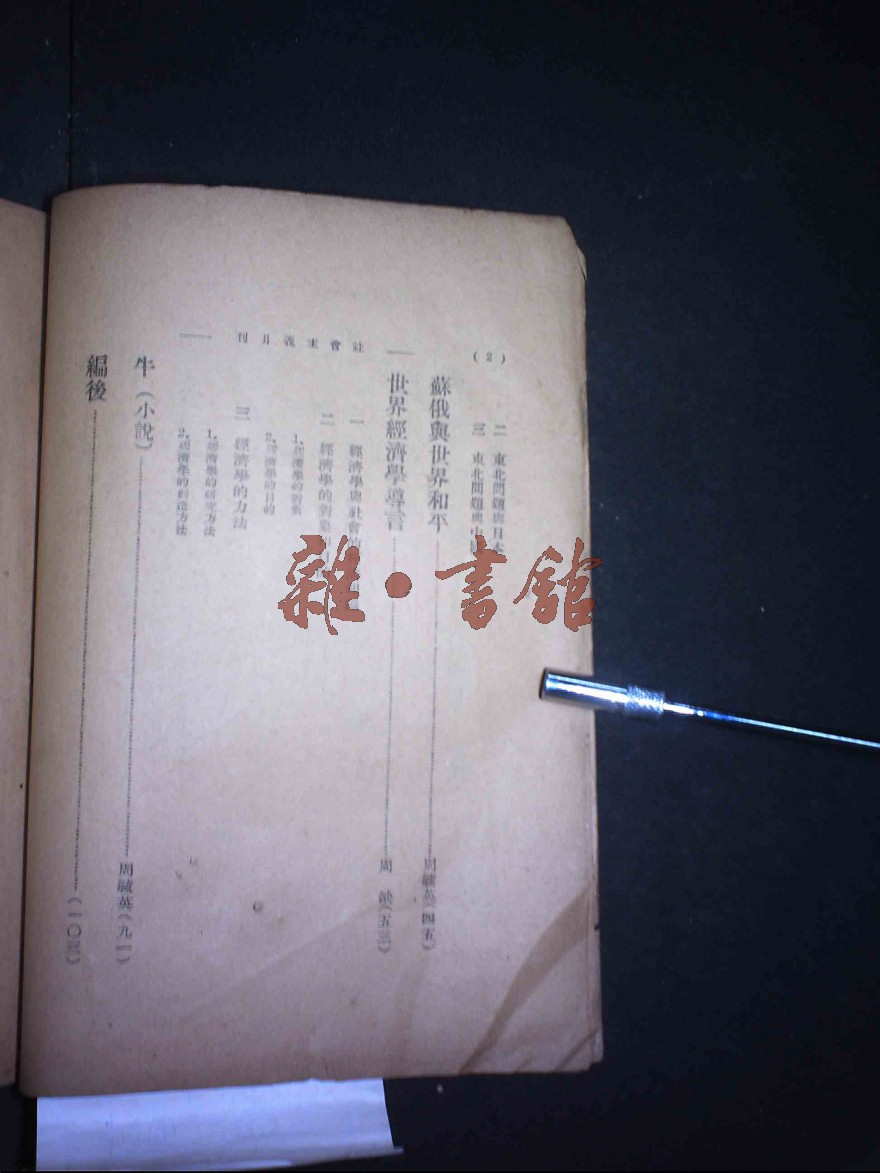 (2)
二 東北問題與日本
三 東北問題與中國
蘇俄與世界和平 周毓英(四五)
世界經濟學導言 周 毓(五三)
一 經濟學與社會
二 經濟學的對象
1.經濟學的對象
2.經濟學的目的
三 經濟學的方法
1.經濟學的研究方法
2.經濟學的創造方法
社會主義月刊
牛(小說) 周毓英(九一)
編後 (一〇三)
雜·書館